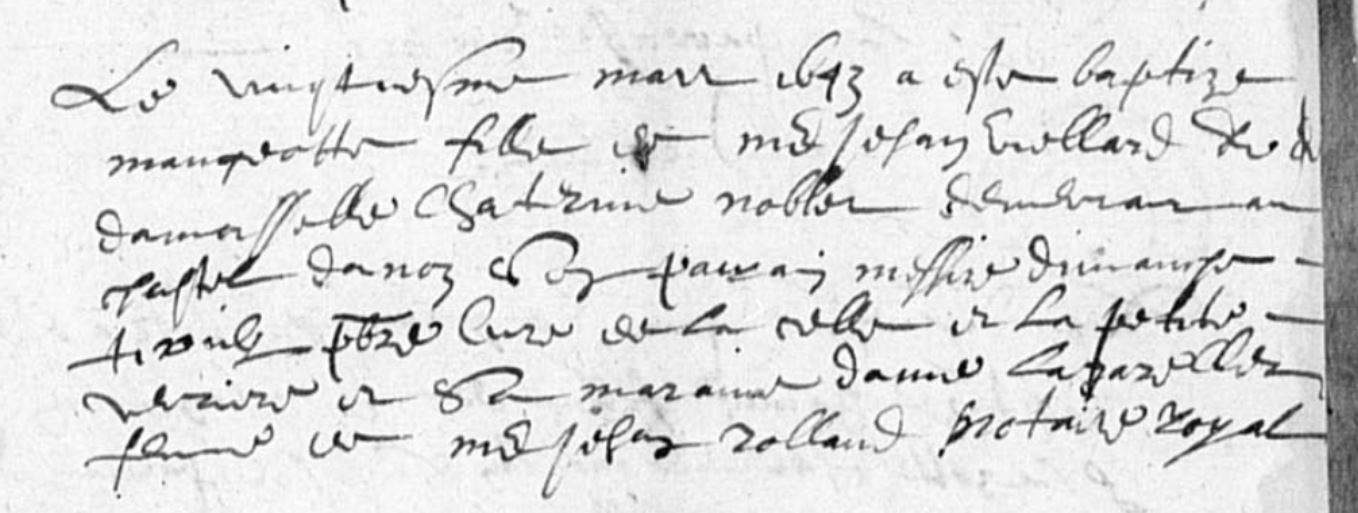 Le vingtiesme mars 1643 a este baptize
mangeotte fille de me Jehan viellard & de
damoisselle Chatrine nobler demeurant au
chastel danoz Son parain messire dimanche
pbre Cure de la celle et la petite
verriere et Sa maraine dame
femme de me Jehan rolland notaire royal